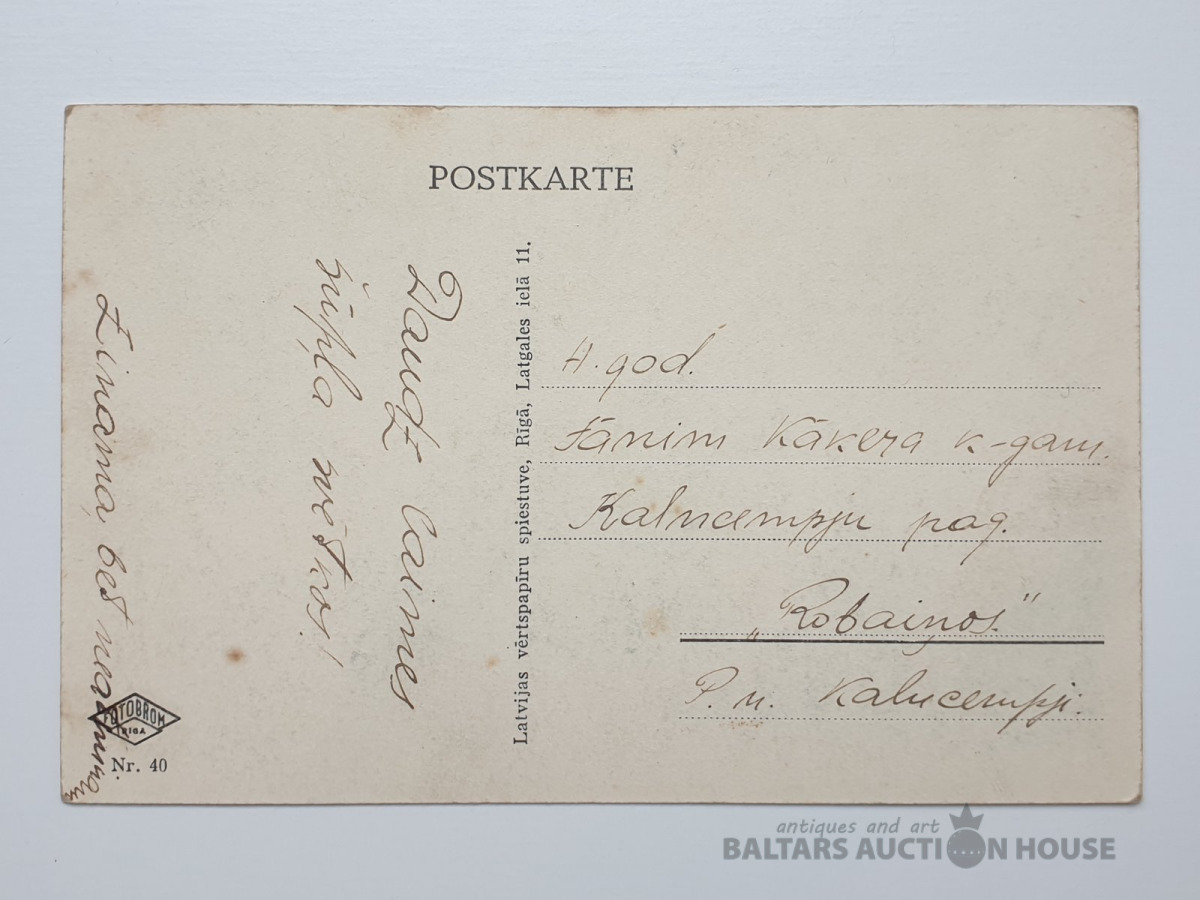 POSTKARTE
Daudz laimes
šūpļa svētkos!
Zināma, bet nea
FOTOBROM
RIGA
Nr. 40
Latvijas vērtspapīru spiestuve, Rīgā, Latgales ielā 11.
A. god.
Jānim Kākera k-gam.
Kalncempju pag.
„Robaiņos."
P. n. Kalncempji.
antiques and art
BALTARS AUCTION HOUSE